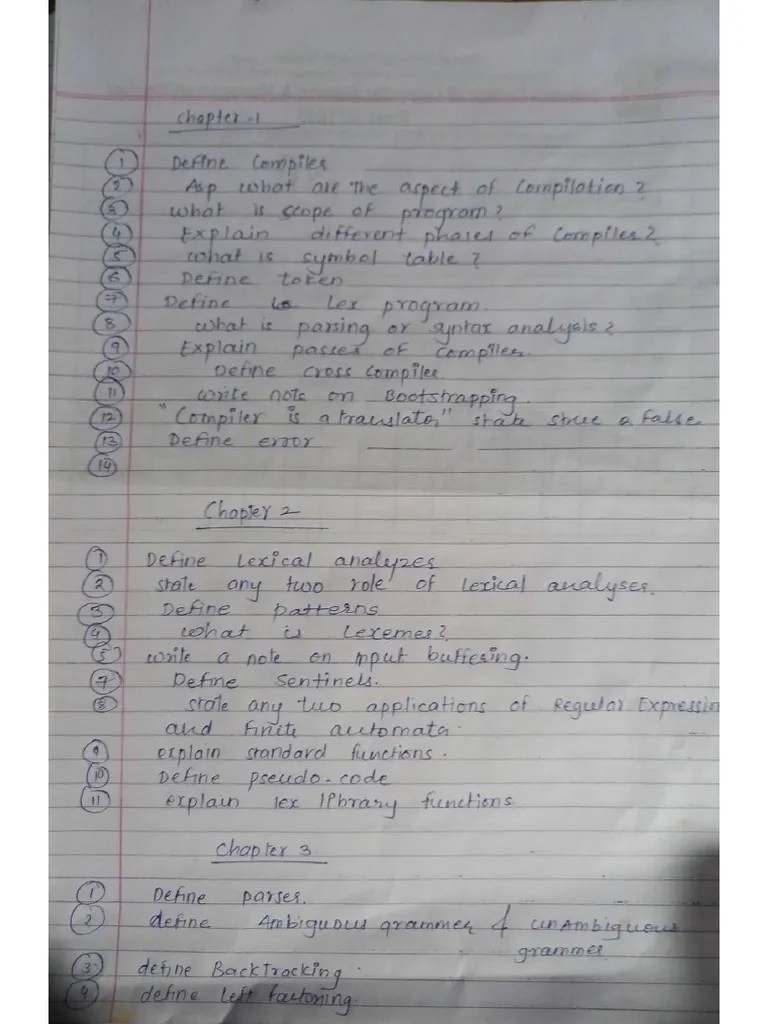 Chapter-1
1 Define Compiler
2 Asp what are the aspect of Compilation?
3 what is scope of program?
4 Explain different phases of Compiler?
5 what is symbol table?
6 Define token
7 Define Lex program.
8 what is parsing or syntax analysis?
9 Explain passes of compiler.
10 Define cross compiler
11 write note on Bootstrapping.
12 "Compiler is a translator" state false
13 Define error
14
Chapter 2
1 Define Lexical analyzer
2 state any two role of lexical analyser.
3 Define patterns
4 what is Lexemes?
5 write a note on input buffering.
7 Define Sentinels.
8 state any two applications of Regular Expression
and finite automata.
9 explain standard functions.
10 Define pseudo-code
11 explain lex library functions
Chapter 3
1 Define parser.
2 define Ambiguous grammer & unAmbiguous
grammer
3 define BackTracking.
4 define left factoring.